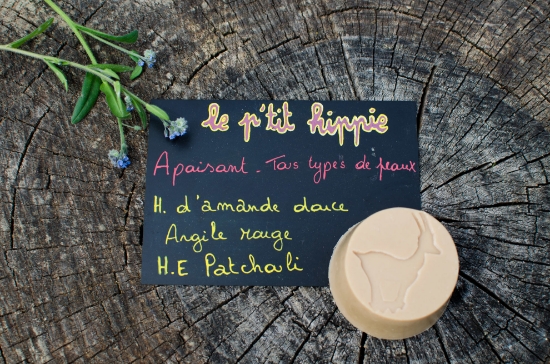 le p'tit hippie
Apaisant - Tous types de peaux
H. d'amande douce
Argile rouge
H.E Patchouli